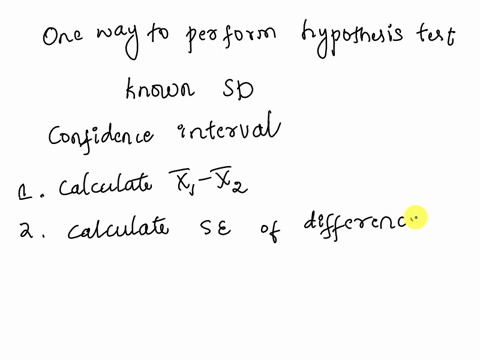 One way to perform hypothesis test
known SD
Confidence interval
1. Calculate X̄₁-X̄₂
2. Calculate SE of differenc